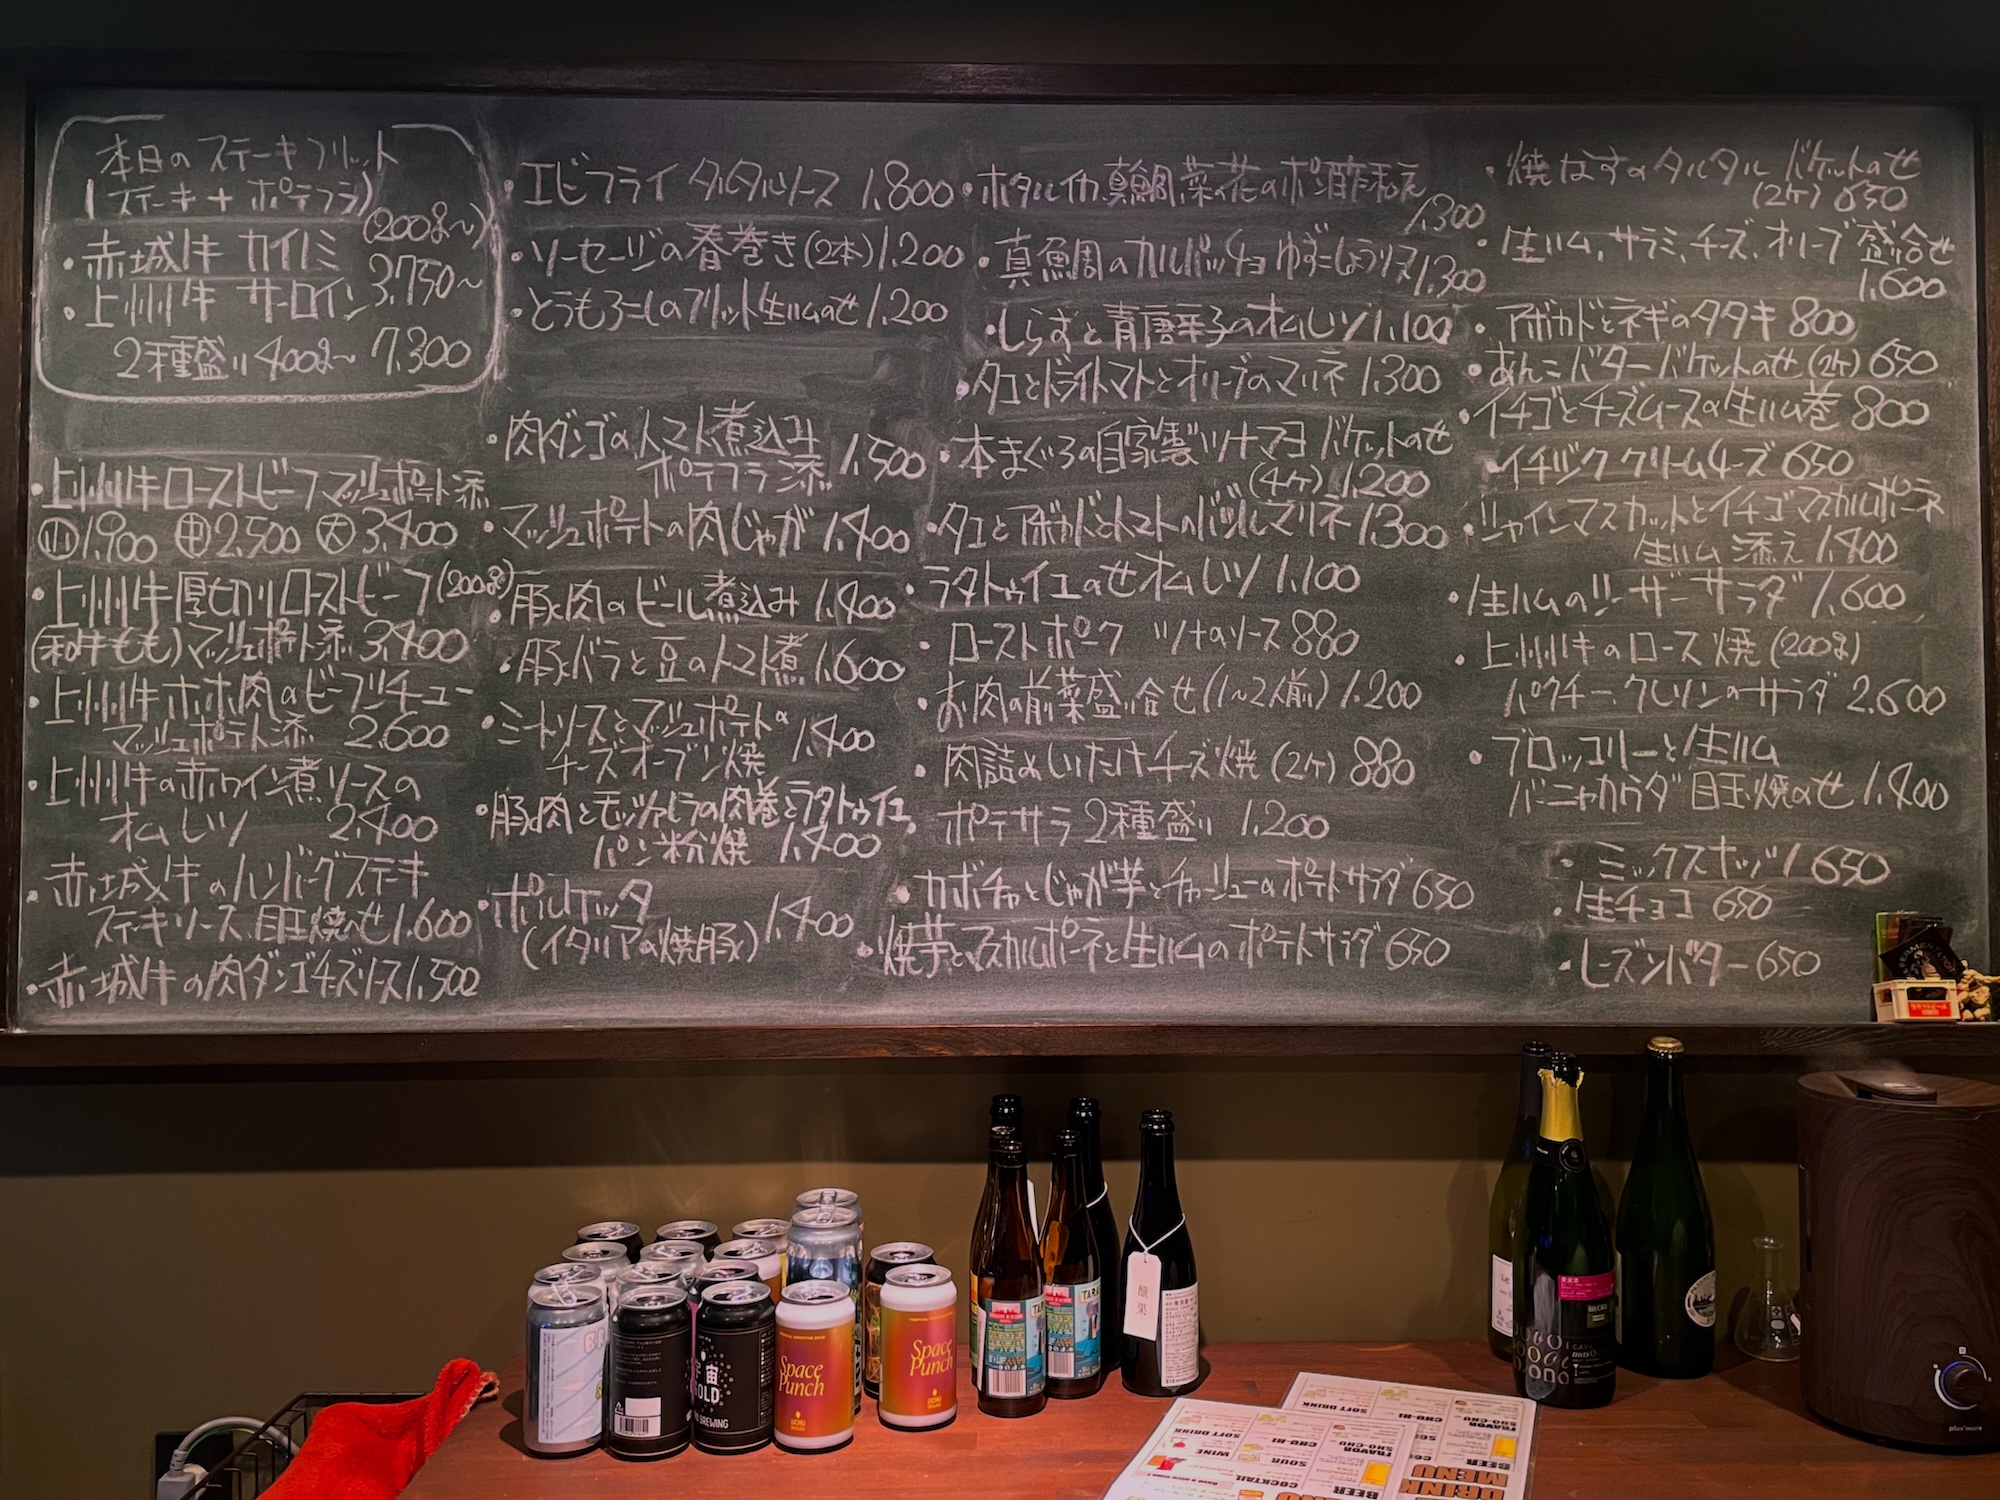 本日のステーキフリット
(ステーキ+ポテフラ)
(200g〜)
・赤城牛 カイノミ 3,750〜
・上州牛 サーロイン
2種盛り 400g〜 7,300
・上州牛ローストビーフ マッシュポテト添
小1,900 中2,500 大3,400
・上州牛厚切りローストビーフ(200g)
(和牛もも)マッシュポテト添 3,400
・上州牛ホホ肉のビーフシチュー
マッシュポテト添 2,600
・上州牛の赤ワイン煮ソースの
オムレツ 2,400
・赤城牛のハンバーグステーキ
ステーキソース、目玉焼のせ 1,600
・赤城牛の肉ダンゴチーズソース 1,500
・エビフライ タルタルソース 1,800
・ソーセージの春巻き(2本) 1,200
・とうもろこしのフリット生ハムのせ 1,200
・肉ダンゴのトマト煮込み
ポテフラ添 1,500
・マッシュポテトの肉じゃが 1,400
・豚肉のビール煮込み 1,400
・豚バラと豆のトマト煮 1,600
・ミートソースとマッシュポテトの
チーズオーブン焼 1,400
・豚肉とモッツァレラの肉巻とラタトゥイユ
パン粉焼 1,400
・ポルケッタ
(イタリアの焼豚) 1,400
・ホタルイカ、真鯛、菜の花のポン酢和え
1,300
・真鯛のカルパッチョ ゆずこしょうソース 1,300
・しらすと青唐辛子のオムレツ 1,100
・タコとドライトマトとオリーブのマリネ 1,300
・本まぐろの自家製ツナマヨ バケットのせ
(4ケ) 1,200
・タコとアボカドとトマトのバジルマリネ 1,300
・ラタトゥイユのせオムレツ 1,100
・ローストポーク ツナのソース 880
・お肉の前菜盛り合せ(1〜2人前) 1,200
・肉詰めしいたけチーズ焼(2ケ) 880
ポテサラ2種盛り 1,200
・カボチャとじゃが芋とチャーシューのポテトサラダ 650
・焼芋とマスカルポーネと生ハムのポテトサラダ 650
・焼なすのタルタル バケットのせ
(2ケ) 650
・生ハム、サラミ、チーズ、オリーブ盛合せ
1,600
・アボカドとネギのタタキ 800
・あんこバターバケットのせ(2ケ) 650
・イチゴとチーズムースの生ハム巻 800
・イチジククリームチーズ 650
・シャインマスカットとイチゴマスカルポーネ
生ハム添え 1,400
・生ハムのシーザーサラダ 1,600
・上州牛のロース焼(200g)
パクチー・クレソンのサラダ 2,600
・ブロッコリーと生ハム
バーニャカウダ 目玉焼のせ 1,400
・ミックスナッツ 650
・生チョコ 650
・レーズンバター 650
宇宙
GOLD
BREWING
Space
Punch
UCHU
Space
Punch
UCHU
醸果
CAVA
plus more
SOFT DRINK
CHU-HI
FRAVOR
SHO-CHU
BEER
DRINK
MENU
SOFT DRINK
WINE
CHU-HI
SOUR
COCKTAIL
FRAVOR
SHO-CHU
BEER